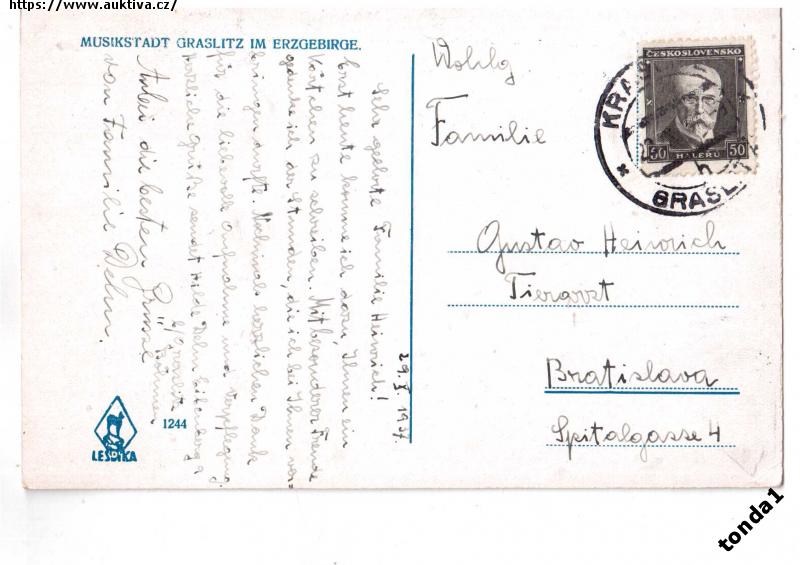 https://www.auktiva.cz/
MUSIKSTADT GRASLITZ IM ERZGEBIRGE.
29. X. 1937.
Sehr geehrte Familie Heinrich!
Erst heute komme ich dazu, Ihnen ein
Kärtchen zu schreiben. Mit besonderer Freude
gedenke ich der Stunden, die ich bei Ihnen ver-
bringen durfte. Nochmals herzlichen Dank
für die liebevolle Aufnahme und Verpflegung.
Herzliche Grüße sendet Hilde Dehm
b/Graslitz
Böhmen
Anbei die besten Grüsse
von Familie Dehm.
LESDIKA
1244
Wohlg
Familie
Gustav Heinrich
Tierarzt
Bratislava
Spitalgasse 4
ČESKOSLOVENSKO
50 HALÉŘŮ 50
KRAS
GRASL
tonda1